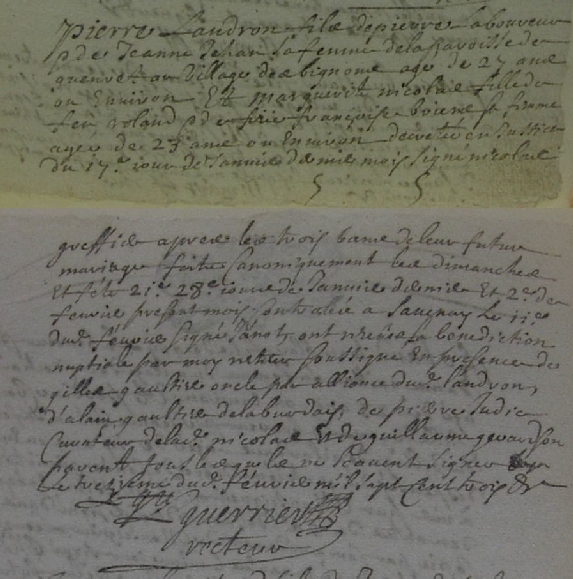 pierre Landron fils de pierre laboureur
& de Jeanne Jehan sa femme de la paroisse de
au village des age de 27 ans
ou Environ Et marguerite nicolas fille de
feu roland & de françoise briene sa femme
agee de 23 ans ou Environ decretee en Justice
du 17e iour de Janvier dernier mois signé nicolas
greffier apres les trois bans de leur futur
mariage faits canoniquement les dimanches
Et fete 21e 28e iour de Janvier dernier Et 2e de
feuvrier present mois controllé a Sauenay le 11e
dud. feuvrier signé ont receu la benediction
nuptiale par moy recteur soussigné En presence de
gilles gaultier oncle par alliance dud. landron,
d'alain gaultier de la burdais, de pierre Judic
Curateur de lad. nicolas Et de guillaume
parent tous lesquels ne scavent signer
le treizieme dud. feuvrier mil sept cent trois
guerrier
recteur